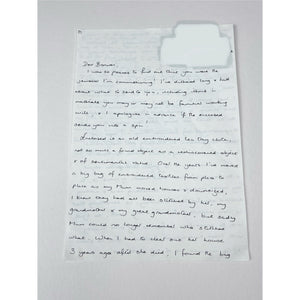 Dear Bronwen,
I was so pleased to find out that you were the
jeweller I'm commissioning! I've dithered long & hard
about what to send to you, including things in
materials you may or may not be familiar working
with, & I apologise in advance if the enclosed
sends you into a spin.
Enclosed is an old embroidered tea tray cloth,
not so much a found object as a rediscovered object
& of sentimental value. Over the years I've moved
a big bag of embroidered textiles from place to
place as my Mum moved houses & downsized,
I knew they had all been stitched by her, my
grandmother & my great grandmother, but sadly
Mum could no longer remember who stitched
what. When I had to clear out her house
3 years ago after she died, I found the big